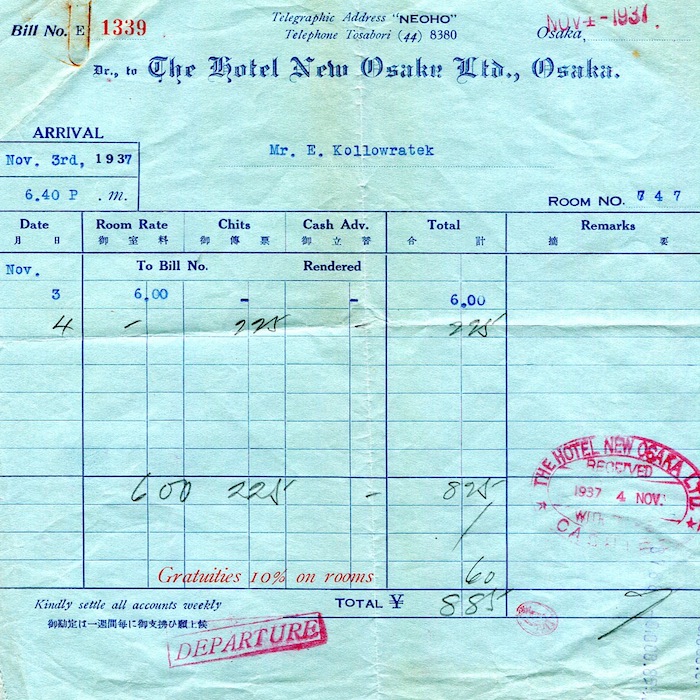 Bill No. E 1339
Telegraphic Address "NEOHO"
Telephone Tosabori (44) 8380
Osaka, NOV 4 - 1937.
Dr., to The Hotel New Osaka Ltd., Osaka.
ARRIVAL
Nov. 3rd, 1937
6.40 P .m.
Mr. E. Kollowratek
ROOM NO. 747
Date Room Rate Chits Cash Adv. Total Remarks
月 日 御 室 料 御 傳 票 御 立 替 合 計 摘 要
Nov. To Bill No. Rendered
3 6.00 - - 6.00
4 - 225 - 225
600 225 - 825
Gratuities 10% on rooms 60
Kindly settle all accounts weekly TOTAL ¥ 885
御勘定は一週間每に御支拂ひ願上候
DEPARTURE
THE HOTEL NEW OSAKA LTD.
RECEIVED
1937 4 NOV.